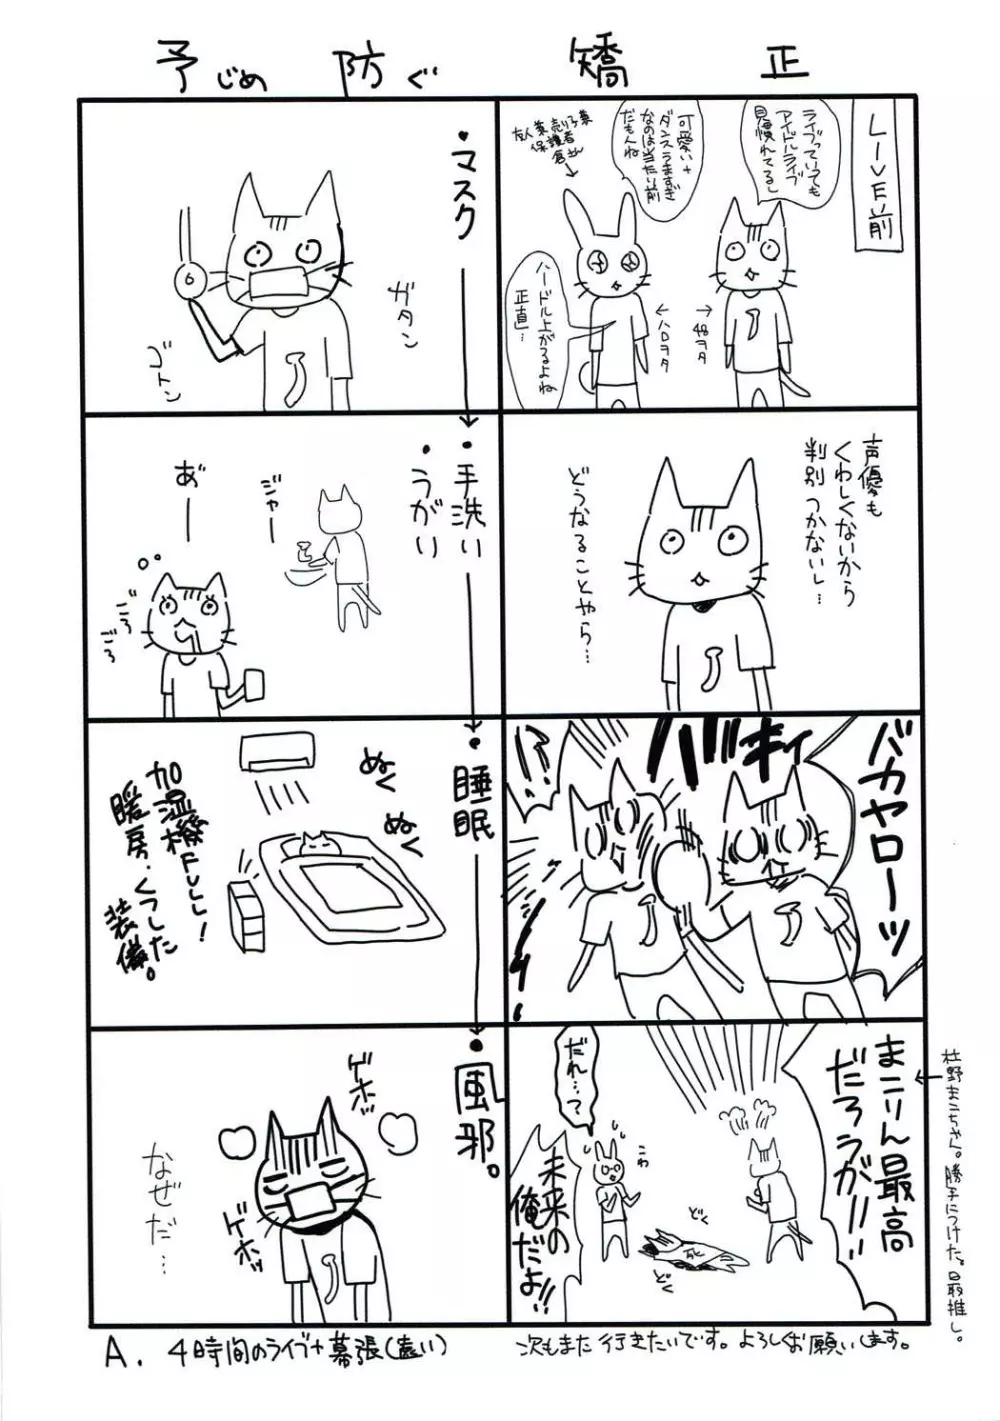 矯正
LIVE前
ライブっていっても
アイドルライブ
見慣れてるし
可愛い+
ダンスうますぎ
なのは当たり前
だもんね
友人兼売り子兼
保護者
倉さん
ハードル上がるよね
正直…
←ハロヲタ
→48ヲタ
声優も
くわしくないから
判別つかないし…
どうなることやら…
バカヤローッ
バキィ
!?
まこりん最高
だろうがー!!
だれ…?
未来の
俺だよ!!
こわ
どく
どく
死
←杜野まこちゃん。勝手につけた。最推し。
次もまた行きたいです。よろしくお願いします。
予じめ防ぐ
・マスク
ガタン
ゴトン
・手洗い
・うがい
ジャー
あ゛ー
ごろ
ごろ
・睡眠
ぬく
ぬく
加湿機FULL!
暖房・くつした
装備。
・風邪。
ゲホッ
ゲホッ
なぜだ…
A. 4時間のライブ+幕張(遠い)